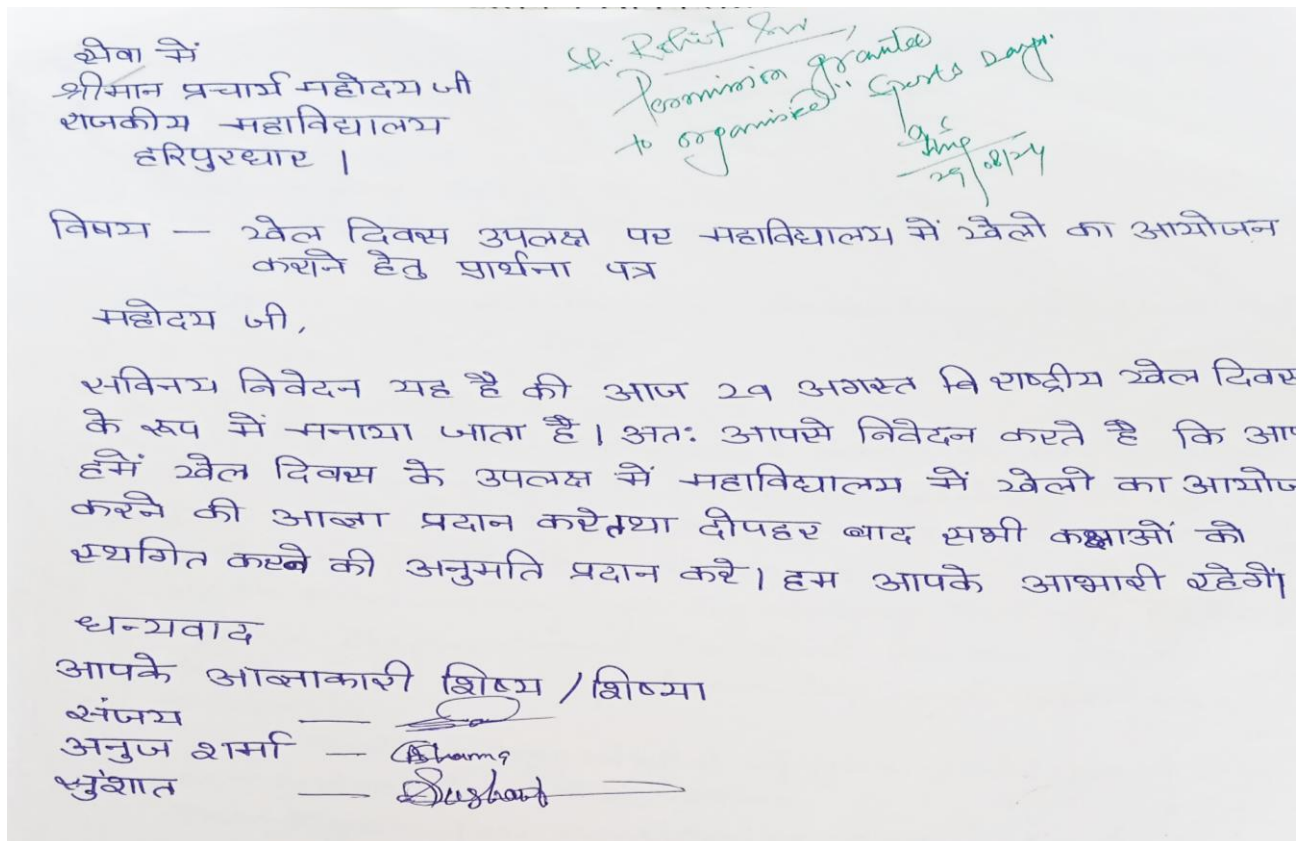 सेवा में
श्रीमान प्रचार्य महोदय जी
राजकीय महाविद्यालय
हरिपुरधार ।
Sh. Rohit Sir,
Permission granted
to organised "Sports Day".
29/08/24
विषय — खेल दिवस उपलक्ष पर महाविद्यालय में खेलो का आयोजन
कराने हेतु प्रार्थना पत्र
महोदय जी,
सविनय निवेदन यह है की आज 29 अगस्त वि राष्ट्रीय खेल दिवस
के रूप में मनाया जाता है । अतः आपसे निवेदन करते है कि आप
हमें खेल दिवस के उपलक्ष में महाविद्यालय में खेलो का आयोज
करने की आज्ञा प्रदान करे तथा दोपहर बाद सभी कक्षाओं को
स्थगित करने की अनुमति प्रदान करे । हम आपके आभारी रहेगें।
धन्यवाद
आपके आज्ञाकारी शिष्य / शिष्या
संजय —
अनुज शर्मा — Sharma
सुंशात — Sushant